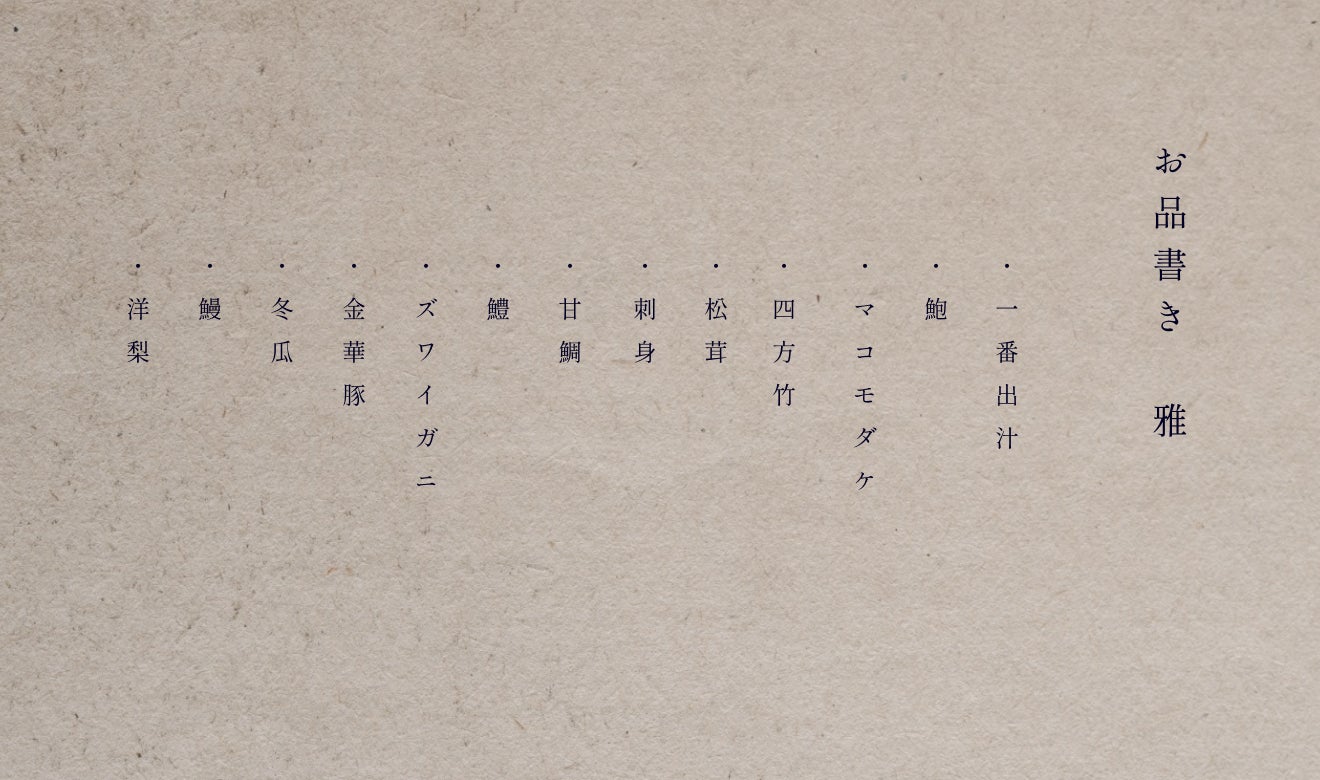 お品書き　雅
・一番出汁
・鮑
・マコモダケ
・四方竹
・松茸
・刺身
・甘鯛
・鱧
・ズワイガニ
・金華豚
・冬瓜
・鰻
・洋梨